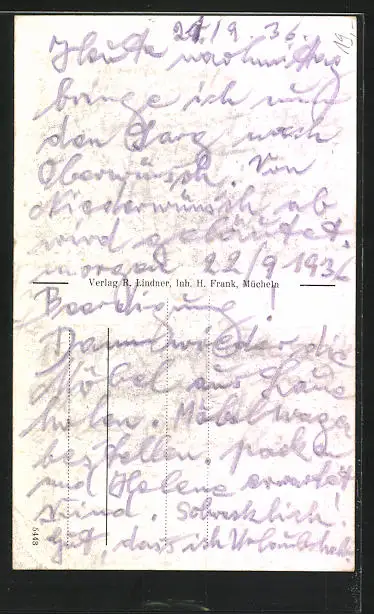 21/9. 36.
19,-
Heute nachmittag
bringe ich nun
den Sarg nach
Oberwünsch. Von
Niederwünsch ab
wird geläutet.
morgen 22/9 1936
Verlag R. Lindner, Inh. H. Frank, Mücheln
Beerdigung!
Dann wieder die
Möbel aus Halle
holen. Möbelwagen
bestellen, packen
und Helene erwartet
Kind. Schrecklich!
gut, dass ich Urlaub hab.
5448